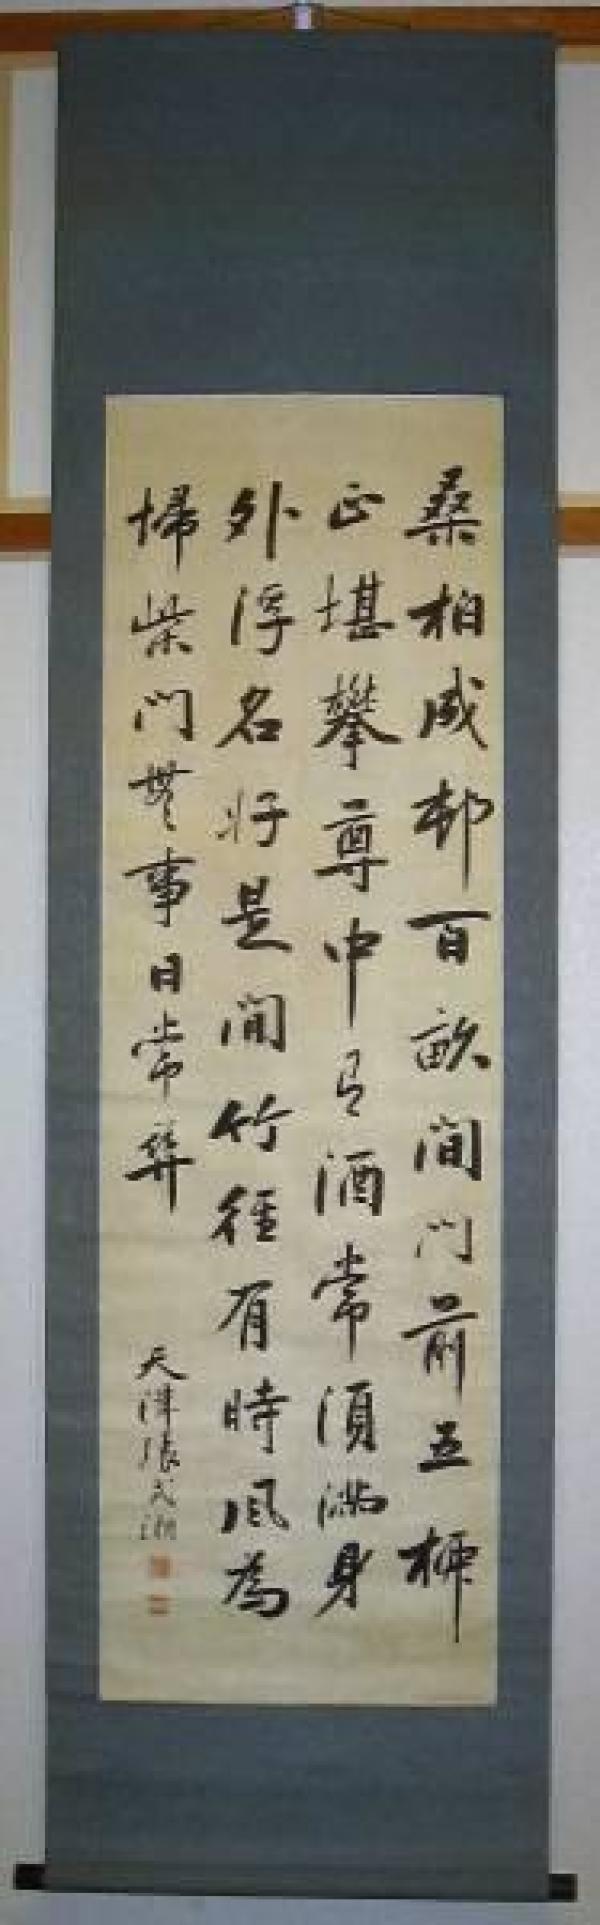 桑柏成邨百畝間門前五柳
正堪攀尊中有酒常須滿身
外浮名好是閒竹徑有時風為
埽柴門無事日常關
天津張